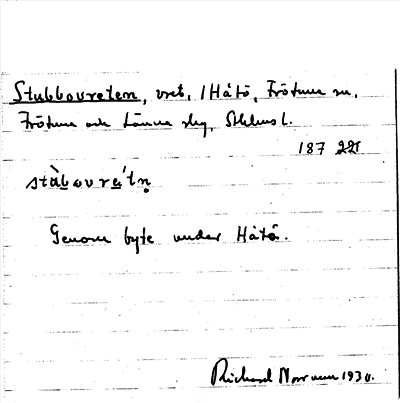 Stubbovreten, vret, 1 Håtö, Frötuna sn,
Frötuna och Länna skg, Sthlms l.
187 22
stàbovre̱´tn̥
Genom byte under Håtö.
Richard Norrman 1930.